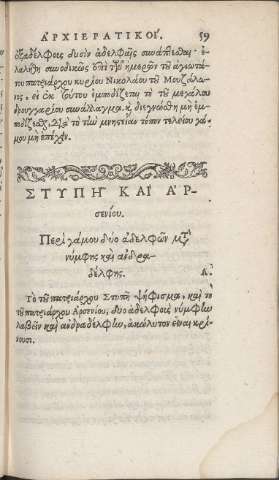 ΑΡΧΙΕΡΑΤΙΚΟΙ. 59
ἐξαδέλφοις δυσὶν ἀδελφαῖς συνάπτεσθαι· ἐ-
λαλήθη συνοδικῶς ἐπὶ τῶν ἡμερῶν τοῦ ἁγιωτά-
του πατριάρχου κυρίου Νικολάου τοῦ Μουζάλω-
νος, εἰ ἐκ τούτου ἐμποδίζεται τὸ τοῦ μεγάλου
δρουγγαρίου συνάλλαγμα. καὶ διεγνώσθη μὴ ἐμ-
ποδίζεσθαι, διὰ τὸ τὴν μνηστείαν τόπον τελείου γά-
μου μὴ ἐπέχειν.
ΣΤΥΠΗ ΚΑΙ ΑΡ-
σενίου.
Περὶ γάμου δύο ἀδελφῶν μετὰ
νύμφης καὶ ἀνδρα-
δέλφης. Α.
Τὸ τοῦ πατριάρχου Στυπῆ ψήφισμα, καὶ τὸ
τοῦ πατριάρχου Ἀρσενίου, δυο ἀδελφοὶς νύμφην
λαβεῖν καὶ ἀνδραδέλφην, ἀκώλυτον εἶναι κρί-
νουσι.